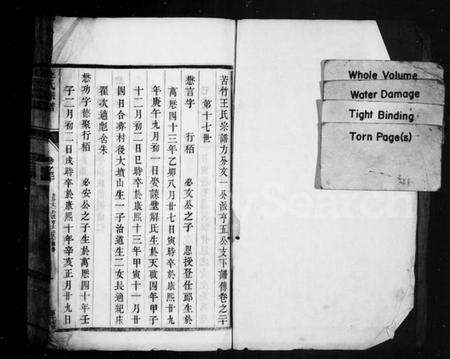 苦竹王氏宗譜方公支一公派亨五公支下譜傳卷之二十
第十七世
懋言字 行栢 必文公之子 恩授登仕郎生於
萬曆四十三年乙卯八月廿七日寅時卒於康熙廿九
年庚午九月初一日娶談墅解氏生於天啟四年甲子
十二月初二日巳時卒於康熙十三年甲寅十一月廿
四日合葬村後大墳山生一子治道生二女長適
翟次適彪舍朱
懋功字 行栢 必安公之子生於萬曆四十年壬
子二月初二日戌時卒於康熙十年辛亥正月廿九日
Whole Volume
Water Damage
Tight Binding
Torn Page(s)